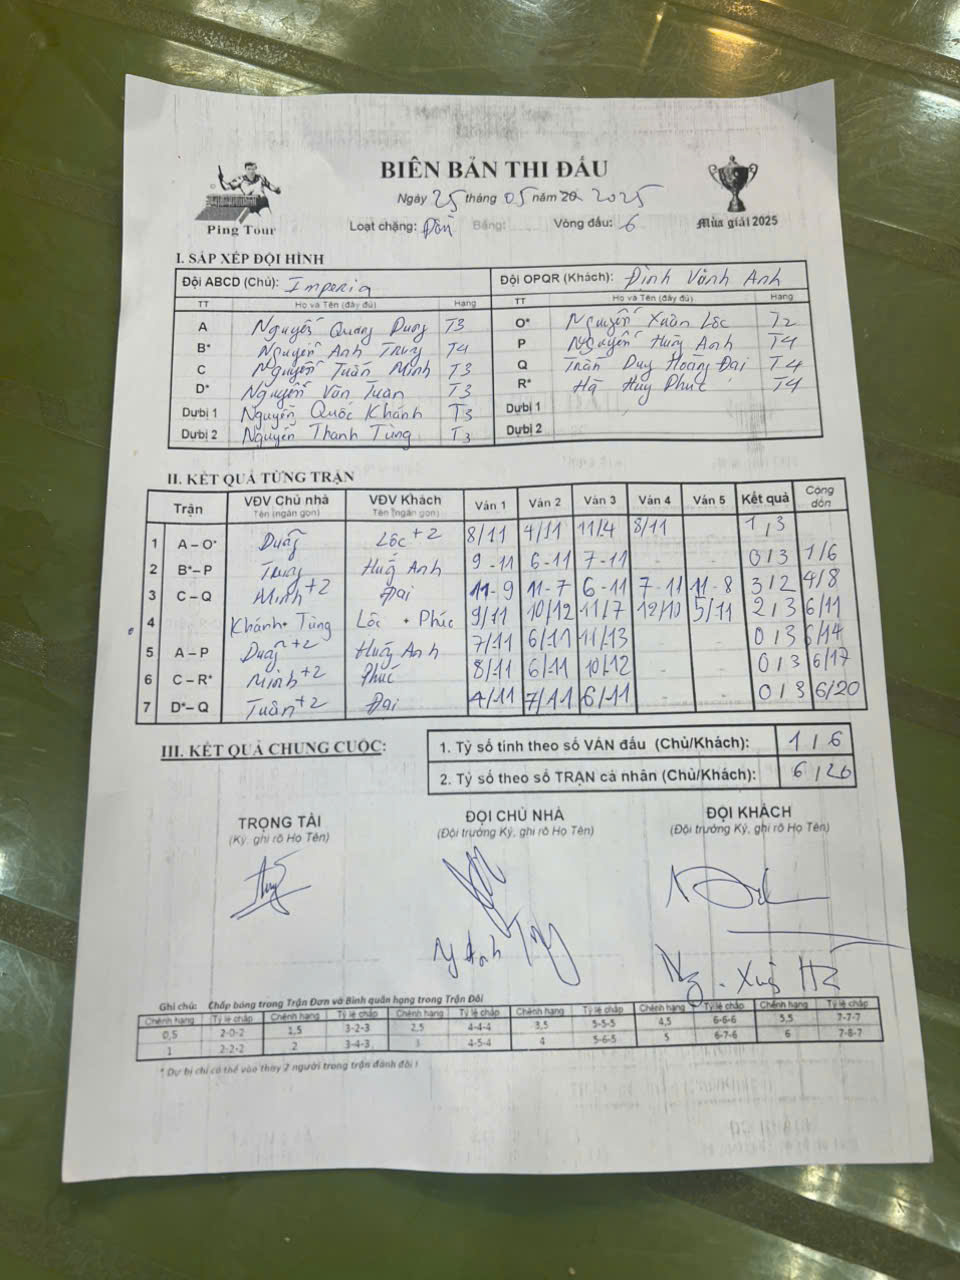 BIÊN BẢN THI ĐẤU
Ngày 25 tháng 05 năm 20 2025
Ping Tour
Loạt chặng: Đôn Bảng: Vòng đấu: 6
Mùa giải 2025
I. SẮP XẾP ĐỘI HÌNH
Đội ABCD (Chủ): Imperia Đội OPQR (Khách): Đình Vành Anh
TT Họ và Tên (đầy đủ) Hạng TT Họ và Tên (đầy đủ) Hạng
A Nguyễn Quang Dung T3 O* Nguyễn Xuân Lộc T2
B* Nguyễn Anh Trung T4 P Nguyễn Hùng Anh T4
C Nguyễn Tuấn Minh T3 Q Trần Duy Hoàng Đại T4
D* Nguyễn Văn Tuân T3 R* Hà Huy Phúc T4
Dự bị 1 Nguyễn Quốc Khánh T3 Dự bị 1
Dự bị 2 Nguyễn Thanh Tùng T3 Dự bị 2
II. KẾT QUẢ TỪNG TRẬN
Trận VĐV Chủ nhà Tên (ngắn gọn) VĐV Khách Tên (ngắn gọn) Ván 1 Ván 2 Ván 3 Ván 4 Ván 5 Kết quả Cộng dồn
1 A – O* Lốc +2 8/11 4/11 11/4 8/11 1/3
2 B* – P Trung Hùng Anh 9-11 6-11 7-11 - - 0/3 1/6
3 C – Q Minh +2 Đại 11-9 11-7 6-11 7-11 11-8 3/2 4/8
4 Khánh + Tùng Lộc + Phúc 9/11 10/12 11/7 12/10 5/11 2/3 6/11
5 A – P +2 Hùng Anh 7/11 6/11 11/13 - - 0/3 6/14
6 C – R* Minh +2 Phúc 8/11 6/11 10/12 - - 0/3 6/17
7 D* – Q Tuân +2 Đại 4/11 7/11 6/11 - - 0/3 6/20
III. KẾT QUẢ CHUNG CUỘC:
1. Tỷ số tính theo số VÁN đấu (Chủ/Khách): 1/6
2. Tỷ số theo số TRẬN cá nhân (Chủ/Khách): 6/20
TRỌNG TÀI ĐỘI CHỦ NHÀ ĐỘI KHÁCH
(Ký, ghi rõ Họ Tên) (Đội trưởng Ký, ghi rõ Họ Tên) (Đội trưởng Ký, ghi rõ Họ Tên)
Ghi chú: Chấp bóng trong Trận Đơn và Bình quân hạng trong Trận Đôi
Chênh hạng Tỷ lệ chấp Chênh hạng Tỷ lệ chấp Chênh hạng Tỷ lệ chấp Chênh hạng Tỷ lệ chấp Chênh hạng Tỷ lệ chấp Chênh hạng Tỷ lệ chấp
0,5 2-0-2 1,5 3-2-3 2,5 4-4-4 3,5 5-5-5 4,5 6-6-6 5,5 7-7-7
1 2-2-2 2 3-4-3 3 4-5-4 4 5-6-5 5 6-7-6 6 7-8-7
* Dự bị chỉ có thể vào thay 2 người trong trận đánh đôi !